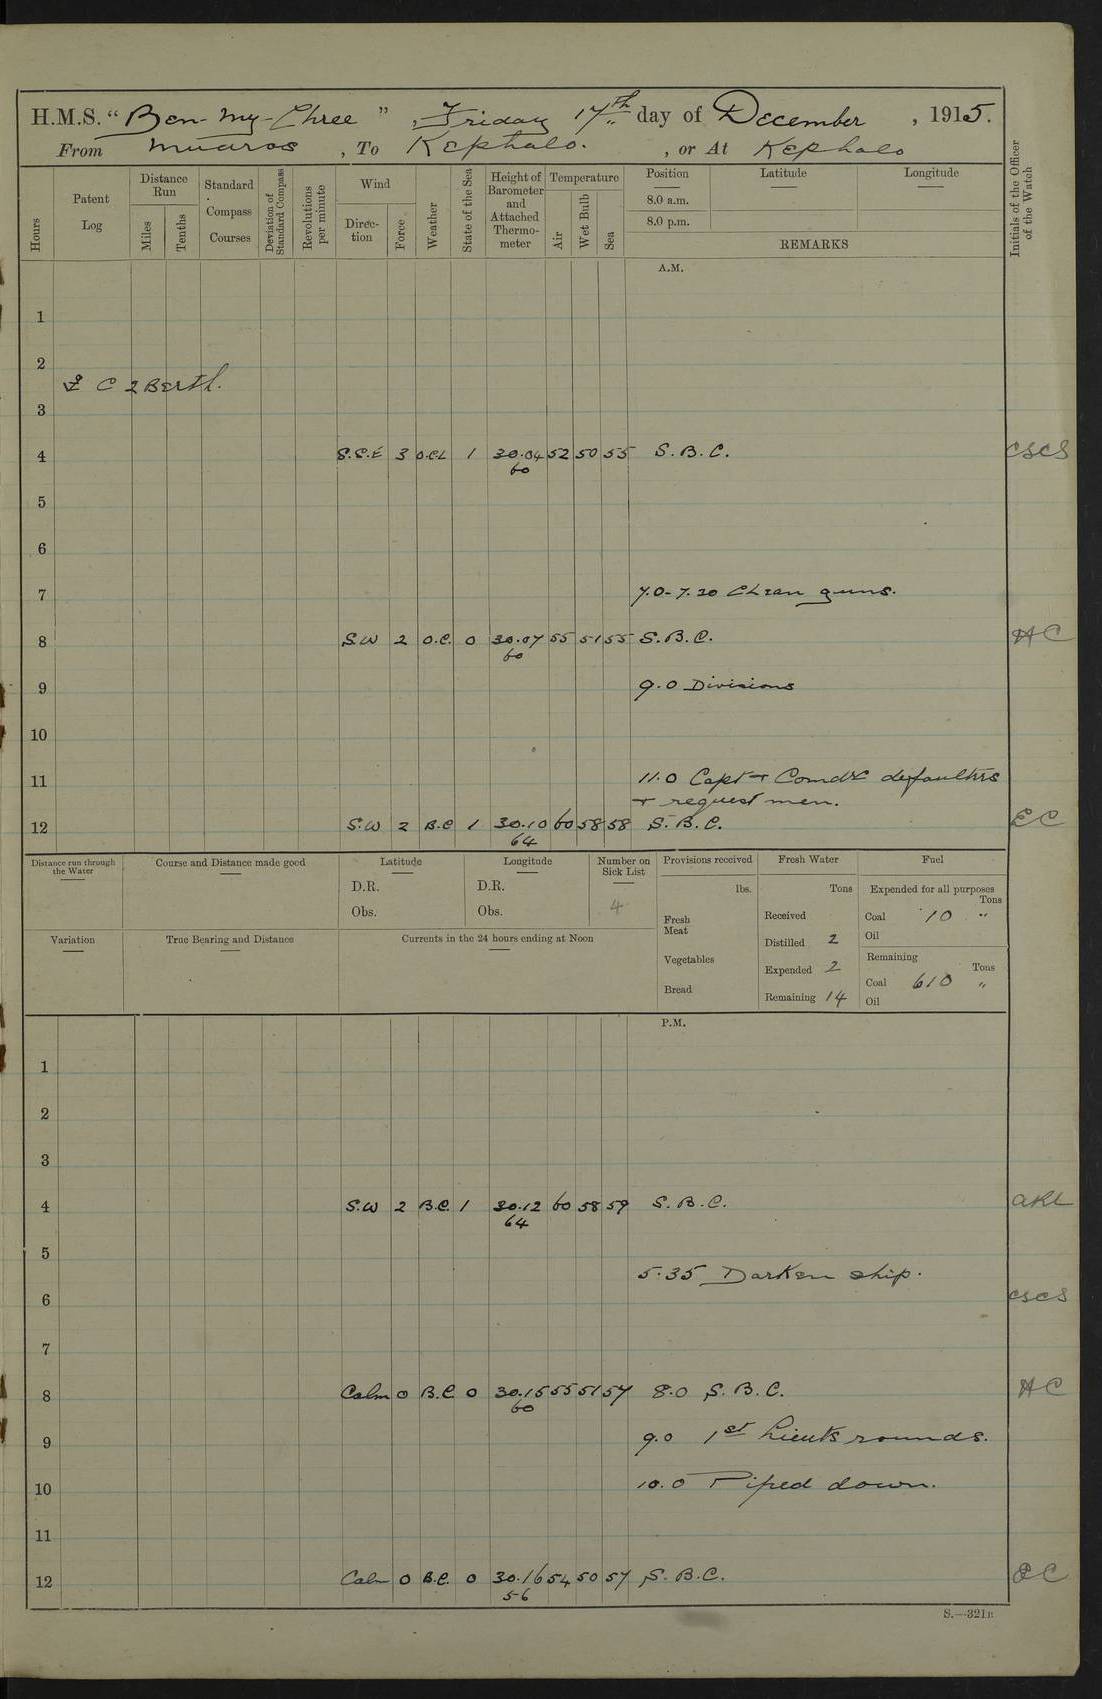 H.M.S. “Ben-my-Chree”, Friday 17th day of December, 1915.
From Mudros, To Kephalo., or At Kephalo
Hours
Patent Log
Distance Run
Miles
Tenths
Standard Compass Courses
Deviation of Standard Compass
Revolutions per minute
Wind
Direction
Force
Weather
State of the Sea
Height of Barometer and Attached Thermometer
Temperature
Air
Wet Bulb
Sea
Position Latitude Longitude
8.0 a.m.
8.0 p.m.
REMARKS
Initials of the Officer of the Watch
A.M.
1
2
C 2 Berth.
3
4 S.S.E 3 O.C.L 1 30.04 52 50 55 S.B.C. CSCS
60
5
6
7 7.0-7.20 Clean guns.
8 S.W 2 O.C. 0 30.07 55 51 55 S.B.C. HC
60
9 9.0 Divisions
10
11 11.0 Capt + Comdr defaulters
+ request men.
12 S.W 2 B.C 1 30.10 60 58 58 S.B.C. EC
64
Distance run through the Water
Course and Distance made good
Latitude
D.R.
Obs.
Longitude
D.R.
Obs.
Number on Sick List
4
Provisions received
lbs.
Fresh Meat
Vegetables
Bread
Fresh Water
Tons
Received
Distilled 2
Expended 2
Remaining 14
Fuel
Expended for all purposes
Tons
Coal 10 "
Oil
Remaining
Tons
Coal 610 "
Oil
Variation
True Bearing and Distance
Currents in the 24 hours ending at Noon
P.M.
1
2
3
4 S.W 2 B.C. 1 30.12 60 58 59 S.B.C. AKL
64
5 5.35 Darken ship.
6 CSCS
7
8 Calm 0 B.C. 0 30.15 55 51 57 8.0 S.B.C. HC
60
9 9.0 1st Lieuts rounds.
10 10.0 Piped down.
11
12 Calm 0 B.C. 0 30.16 54 50 57 S.B.C. EC
56
S.—321B